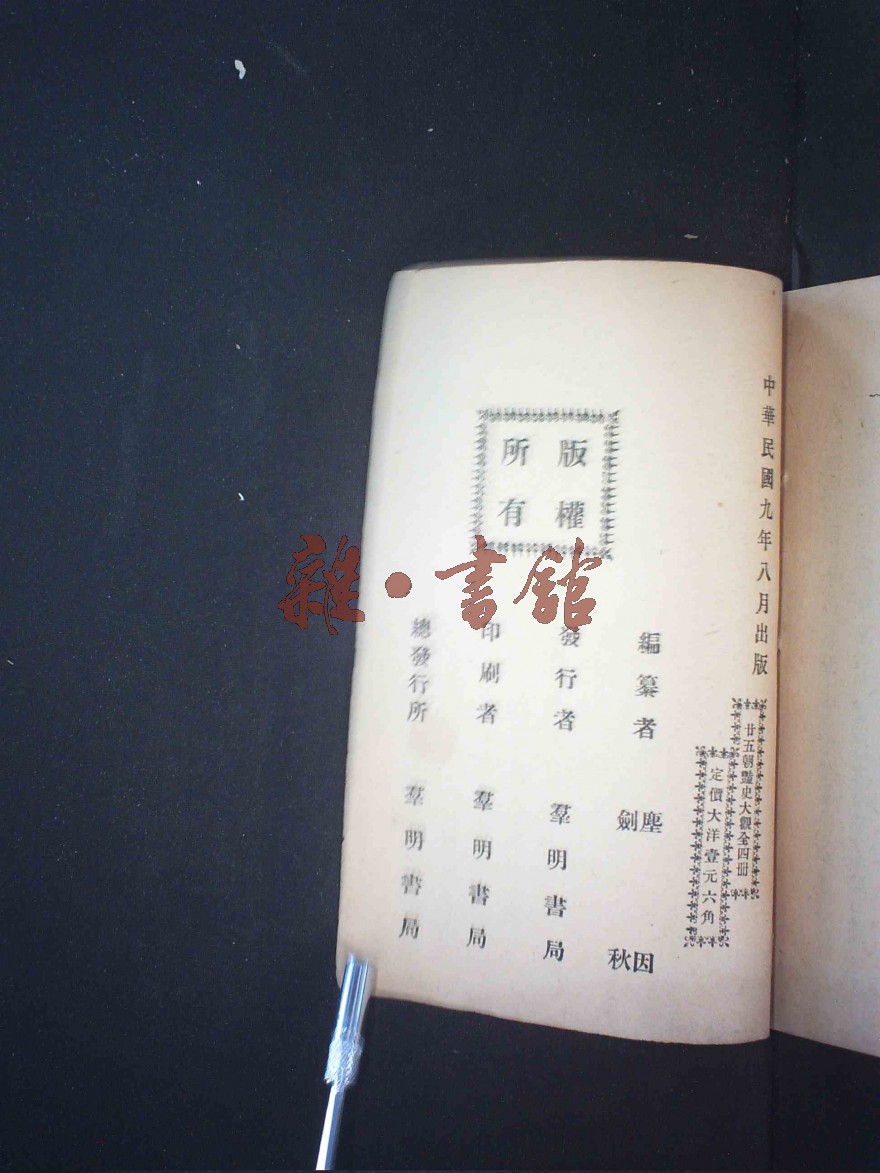 中華民國九年八月出版
廿五朝豔史大觀全四冊
定價大洋壹元六角
編纂者 塵因
劍秋
發行者 羣明書局
印刷者 羣明書局
總發行所 羣明書局
版權
所有
雜·書館